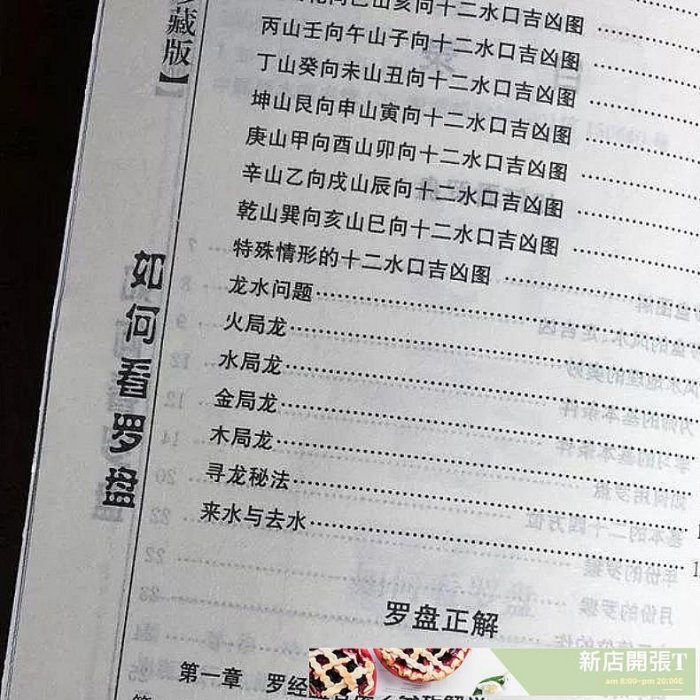 藏版】
如何看罗盘
向巳山亥向十二水口吉凶图
丙山壬向午山子向十二水口吉凶图
丁山癸向未山丑向十二水口吉凶图
坤山艮向申山寅向十二水口吉凶图
庚山甲向酉山卯向十二水口吉凶图
辛山乙向戌山辰向十二水口吉凶图
乾山巽向亥山巳向十二水口吉凶图
特殊情形的十二水口吉凶图
龙水问题
火局龙
水局龙
金局龙
木局龙
寻龙秘法
来水与去水
罗盘正解
第一章 罗经
新店開張T
am 8:00~pm 20:00E